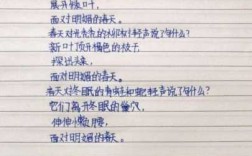 展开嫩叶，
面对明媚的春天。
春天对光秃秃的柳树轻声说了句什么？
新叶顶开褐色的枝子，
探出头，
面对明媚的春天。
春天对冬眠的青蛙和蛇轻声说了句什么？
它们离开冬眠的巢穴，
伸伸懒腰，
面对明媚的春天。